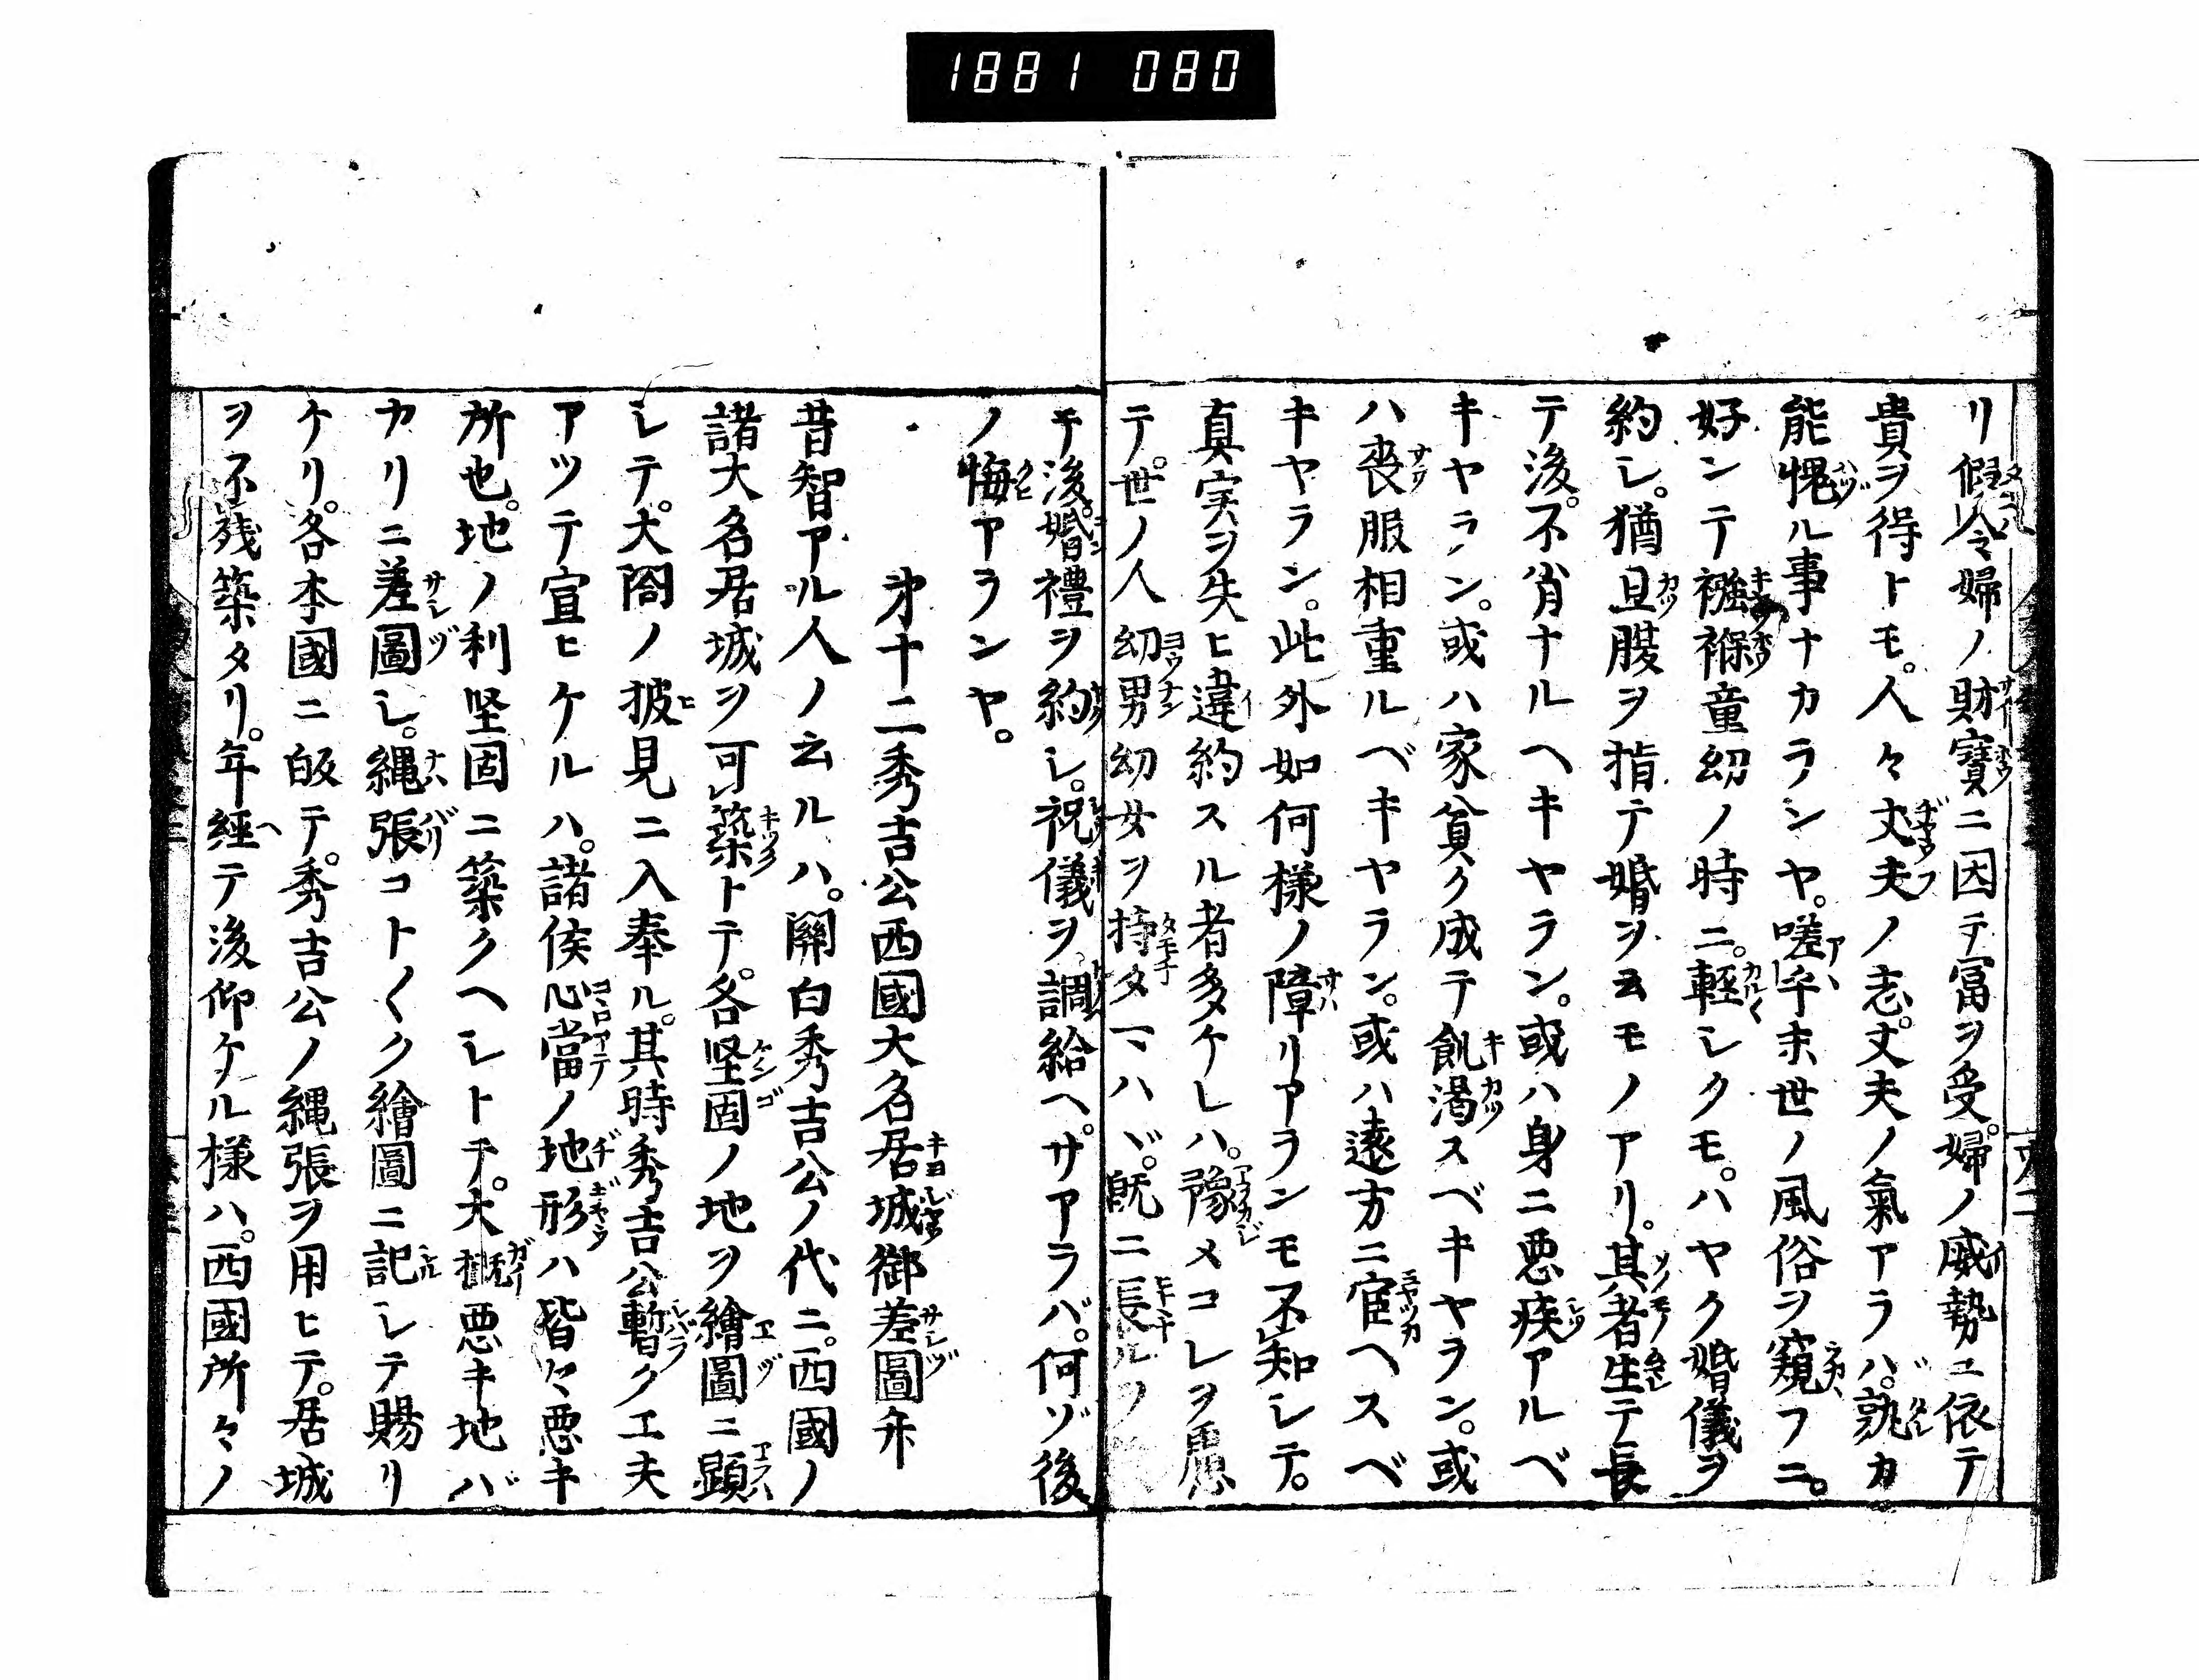 1881 080
リ假令婦ノ財寶ニ因テ冨ヲ受。婦ノ威勢ニ依テ
貴ヲ得トモ。人々丈夫ノ志。丈夫ノ氣アラハ。孰カ
能愧ル事ナカランヤ。嗟乎末世ノ風俗ヲ窺フニ。
好ンテ襁褓童幼ノ時ニ。軽シクモ。ハヤク婚儀ヲ
約シ。猶且腹ヲ指テ婚ヲ云モノアリ。其者生テ長
テ後。不肖ナルヘキヤラン。或ハ身ニ悪疾アルベ
キヤラン。或ハ家貧ク成テ飢渇スベキヤラン。或
ハ喪服相重ルベキヤラン。或ハ遠方ニ宦ヘスベ
キヤラン。此外如何様ノ障リアランモ不知シテ。
真実ヲ失ヒ違約スル者多ケレハ。豫メコレヲ慮
テ。世ノ人幼男幼女ヲ持タマハヾ。既ニ長ルノ
モ後。婚禮ヲ約シ。祝儀ヲ調給ヘ。サアラバ。何ゾ後
ノ悔アランヤ。
㐧十二秀吉公西國大名居城御差圖㐧
昔智アル人ノ云ルハ。關白秀吉公ノ代ニ。西國ノ
諸大名居城ヲ可築トテ。各堅固ノ地ヲ繪圖ニ顕
シテ。大閤ノ披見ニ入奉ル。其時秀吉公暫ク工夫
アツテ宣ヒケルハ。諸侯心當ノ地形ハ皆々悪キ
所也。地ノ利堅固ニ築クヘシトテ。大概悪キ地バ
カリニ差圖シ。縄張コト〱ク繪圖ニ記シテ賜リ
ケリ。各本國ニ皈テ。秀吉公ノ縄張ヲ用ヒテ。居城
ヲ不残築タリ。年經テ後仰ケル様ハ。西國所々ノ